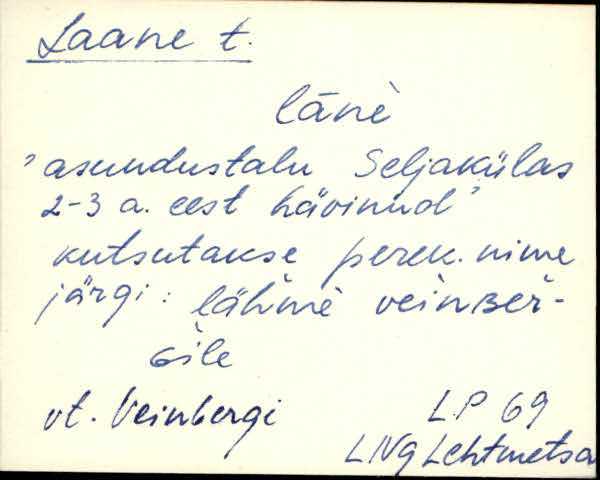 Laane t.
lānè
'asundustalu Seljakülas
2-3 a. eest hävinud'
kutsutakse perek. nime
järgi: lähmè veinBer-
Gile
vt. Veinbergi L.P 69
LNg Lehtmetsa